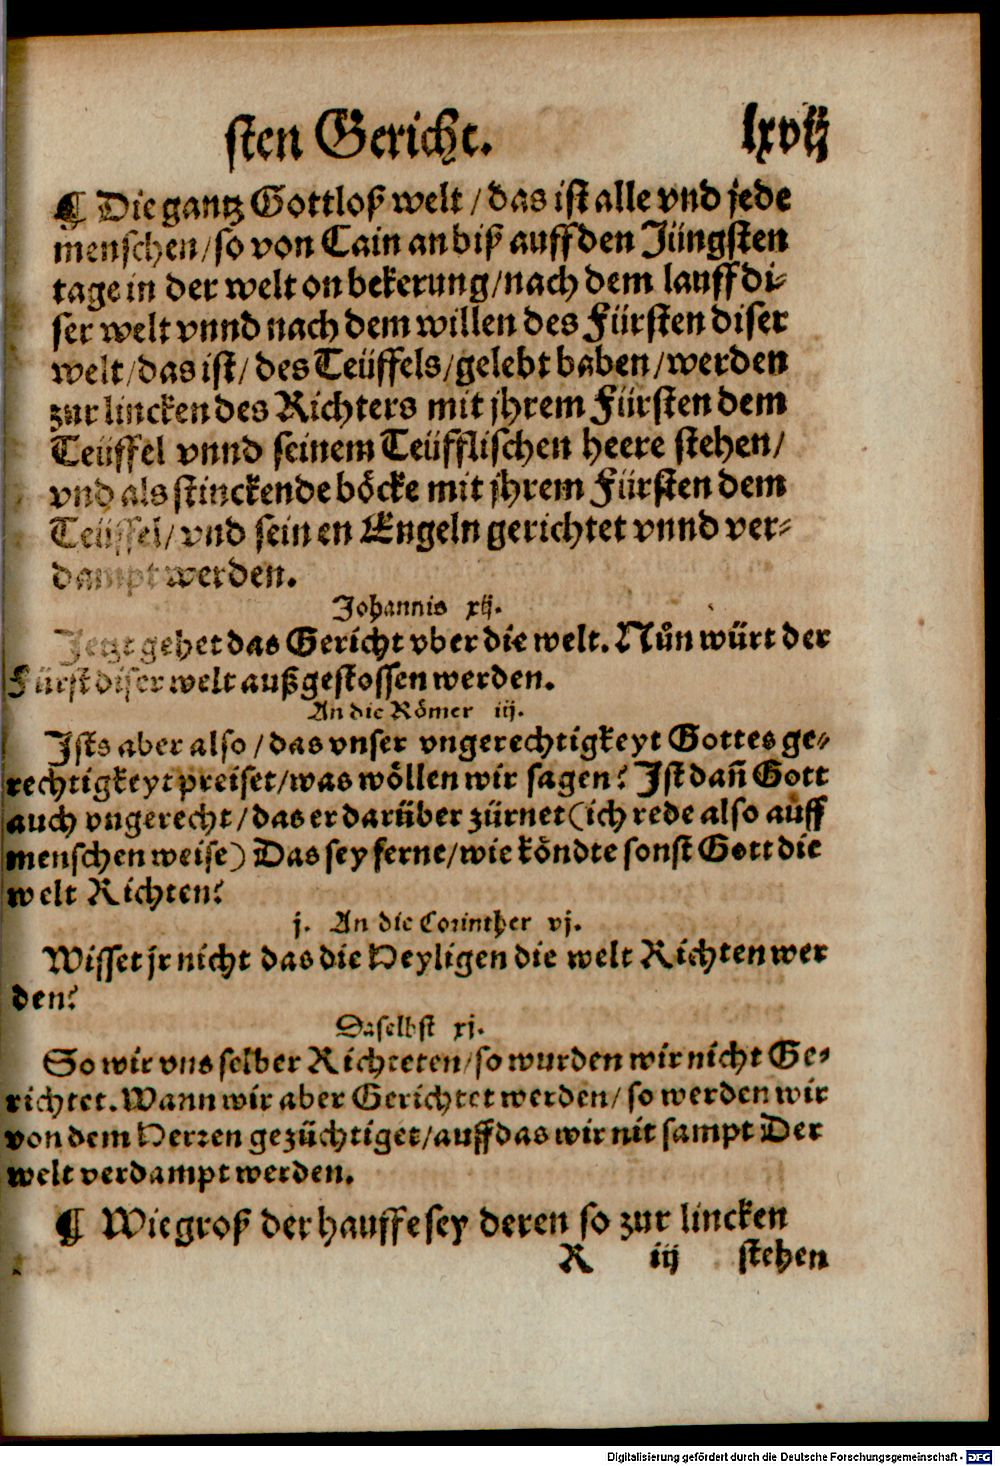 sten Gericht. lxvij
¶ Die gantz Gottloß welt / das ist alle vnd jede
menschen / so von Cain an biß auff den Jüngsten
tage in der welt on bekerung / nach dem lauff di⸗
ser welt vnnd nach dem willen des Fürsten diser
welt / das ist / des Teüffels / gelebt haben / werden
zur lincken des Richters mit jhrem Fürsten dem
Teüffel vnnd seinem Teüfflischen heere stehen /
vnd als stinckende böcke mit jhrem Fürsten dem
Teüffel / vnd sein en Engeln gerichtet vnnd ver⸗
dampt werden.
Johannis xij.
Jetzt gehet das Gericht vber die welt. Nůn würt der
Fürst diser welt außgestossen werden.
An die Römer iij.
Ists aber also / das vnser vngerechtigkeyt Gottes ge⸗
rechtigkeyt preiset / was wöllen wir sagen? Ist dañ Gott
auch vngerecht / das er darüber zürnet (ich rede also auff
menschen weise) Das sey ferne / wie köndte sonst Gott die
welt Richten?
j. An die Corinther vj.
Wisset jr nicht das die Heyligen die welt Richten wer
den?
Daselbst xj.
So wir vns selber Richteten / so wurden wir nicht Ge⸗
richtet. Wann wir aber Gerichtet werden / so werden wir
von dem Herren gezüchtiget / auff das wir nit sampt Der
welt verdampt werden.
¶ Wie groß der hauffe sey deren so zur lincken
R iij stehen
Digitalisierung gefördert durch die Deutsche Forschungsgemeinschaft - DFG